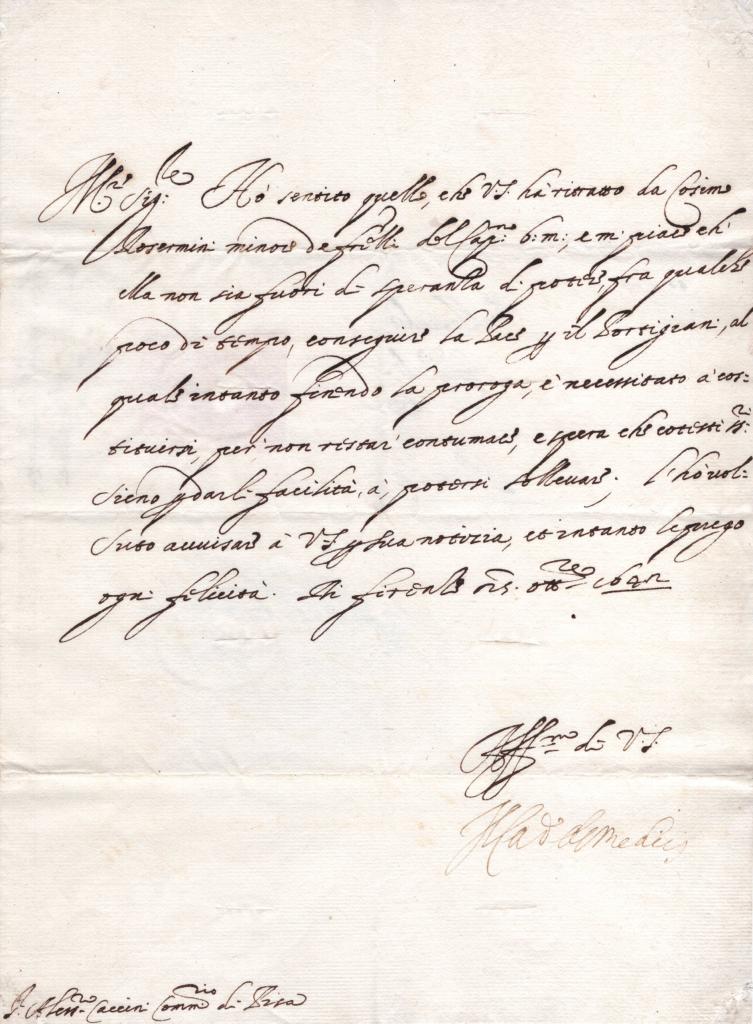 M.to Sig.re Hò sentito quello, che V.S. hà ritratto da Cosimo
Rosermini minore de fr̃elli del Cap.no b: m:, e mi piace ch'
ella non sia fuori di speranza di potere, fra qualche
poco di tempo, conseguire la Pace p il Portigiani, al
quale intanto finendo la proroga, è necessitato à cos=
tituirsi, per non restar' contumace, e spera che cotesti SS.ri
sieno p darli facilità, à, potersi sollevare; l'hò vol=
suto avvisare à V.S. p sua notizia, et intanto le prego
ogni felicità. Di firenze 25. ott.re 1642
Aff.mo di V.S.
de Medici
S. Aless.ro Caccini Comm.rio di Pisa